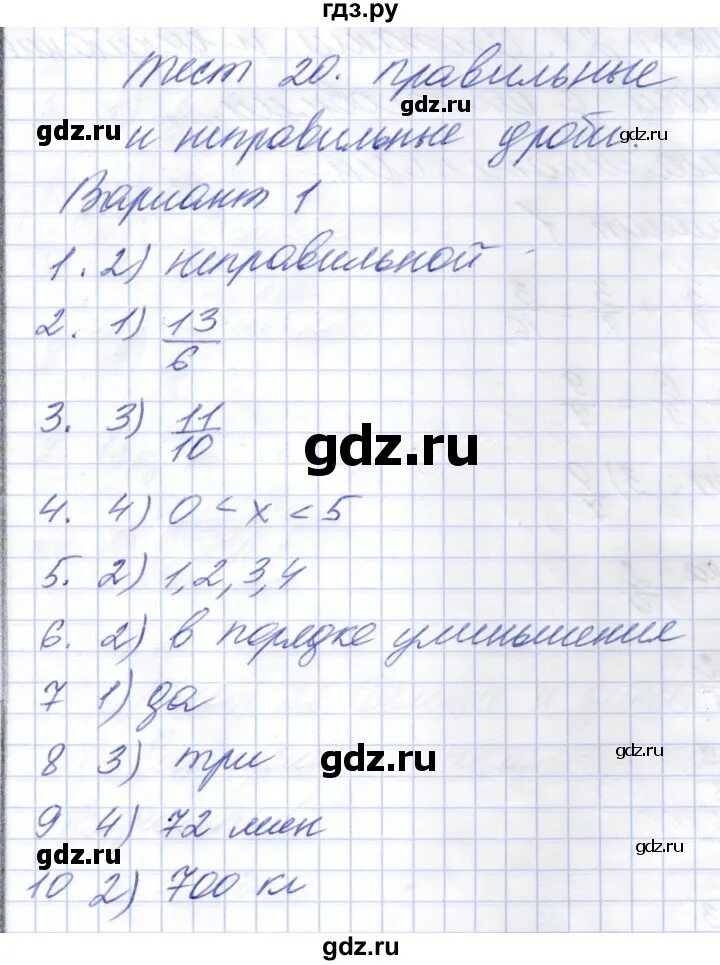 гдз.ру
Тест 20. Правильные
gdz.ru
gdz.ru и неправильные дроби. gdz.ru
Вариант 1
1. 2) неправильной
2. 1) 13/6
3. 3) 11/10
gdz.ru
4. 4) 0 < x < 5
5. 2) 1, 2, 3, 4
6. 2) в порядке уменьшения
7 1) да
8 3) три gdz.ru gdz.ru
9 4) 72 мин
gdz.ru gdz.ru
10 2) 700 кг
gdz.ru